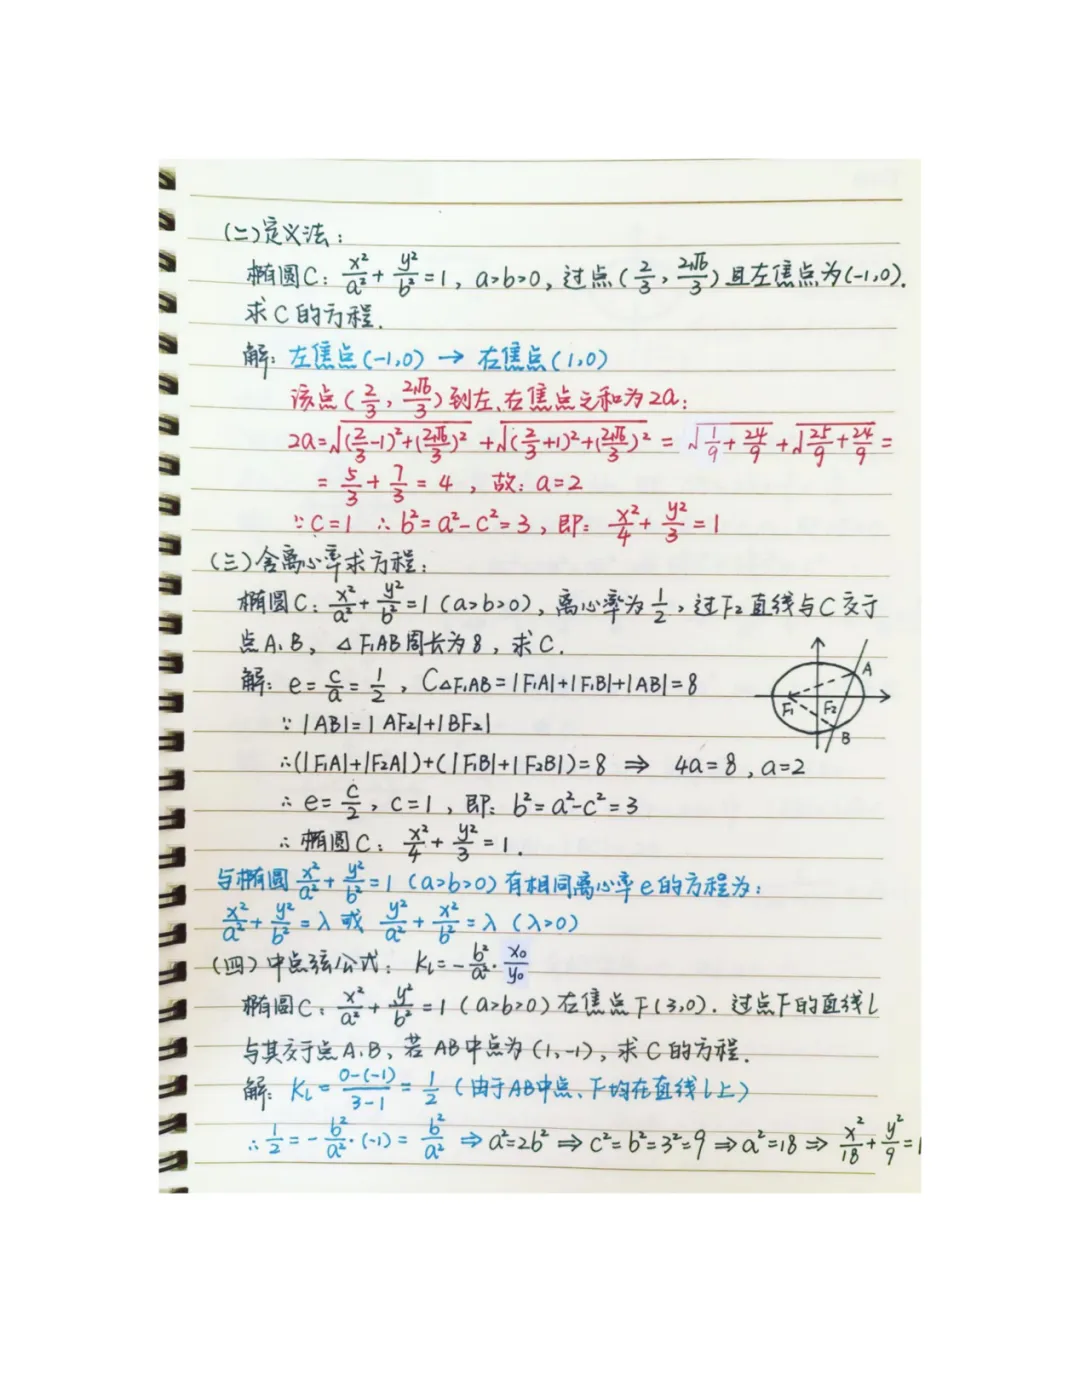 (二)定义法:
椭圆C: x²/a² + y²/b² = 1, a>b>0, 过点(2/3, 2√6/3)且左焦点为(-1,0).
求C的方程.
解: 左焦点(-1,0) → 右焦点(1,0)
该点(2/3, 2√6/3)到左、右焦点之和为2a:
2a=√((2/3-1)²+(2√6/3)²) + √((2/3+1)²+(2√6/3)²) = √(1/9+24/9) + √(25/9+24/9) =
= 5/3 + 7/3 = 4, 故: a=2
∵C=1 ∴b²=a²-c²=3, 即: x²/4 + y²/3 = 1
(三)含离心率求方程:
椭圆C: x²/a² + y²/b² = 1 (a>b>0), 离心率为1/2, 过F₂直线与C交于
点A、B, △F₁AB周长为8, 求C.
解: e = c/a = 1/2, C△F₁AB = |F₁A|+|F₁B|+|AB|=8
∵|AB|=|AF₂|+|BF₂|
∴(|F₁A|+|F₂A|)+(|F₁B|+|F₂B|)=8 ⇒ 4a=8, a=2
∴ e= c/2, c=1, 即: b²=a²-c²=3
∴ 椭圆C: x²/4 + y²/3 = 1.
A
F₁ F₂
B
与椭圆 x²/a² + y²/b² = 1 (a>b>0) 有相同离心率e的方程为:
x²/a² + y²/b² = λ 或 y²/a² + x²/b² = λ (λ>0)
(四)中点弦公式: K_l = - b²/a² · x₀/y₀
椭圆C: x²/a² + y²/b² = 1 (a>b>0) 右焦点F(3,0). 过点F的直线l
与其交于点A、B, 若AB中点为(1,-1), 求C的方程.
解: K_l = (0-(-1))/(3-1) = 1/2 (由于AB中点、F均在直线l上)
∴ 1/2 = - b²/a² · (-1) = b²/a² ⇒ a²=2b² ⇒ c²=b²=3²=9 ⇒ a²=18 ⇒ x²/18 + y²/9 = 1